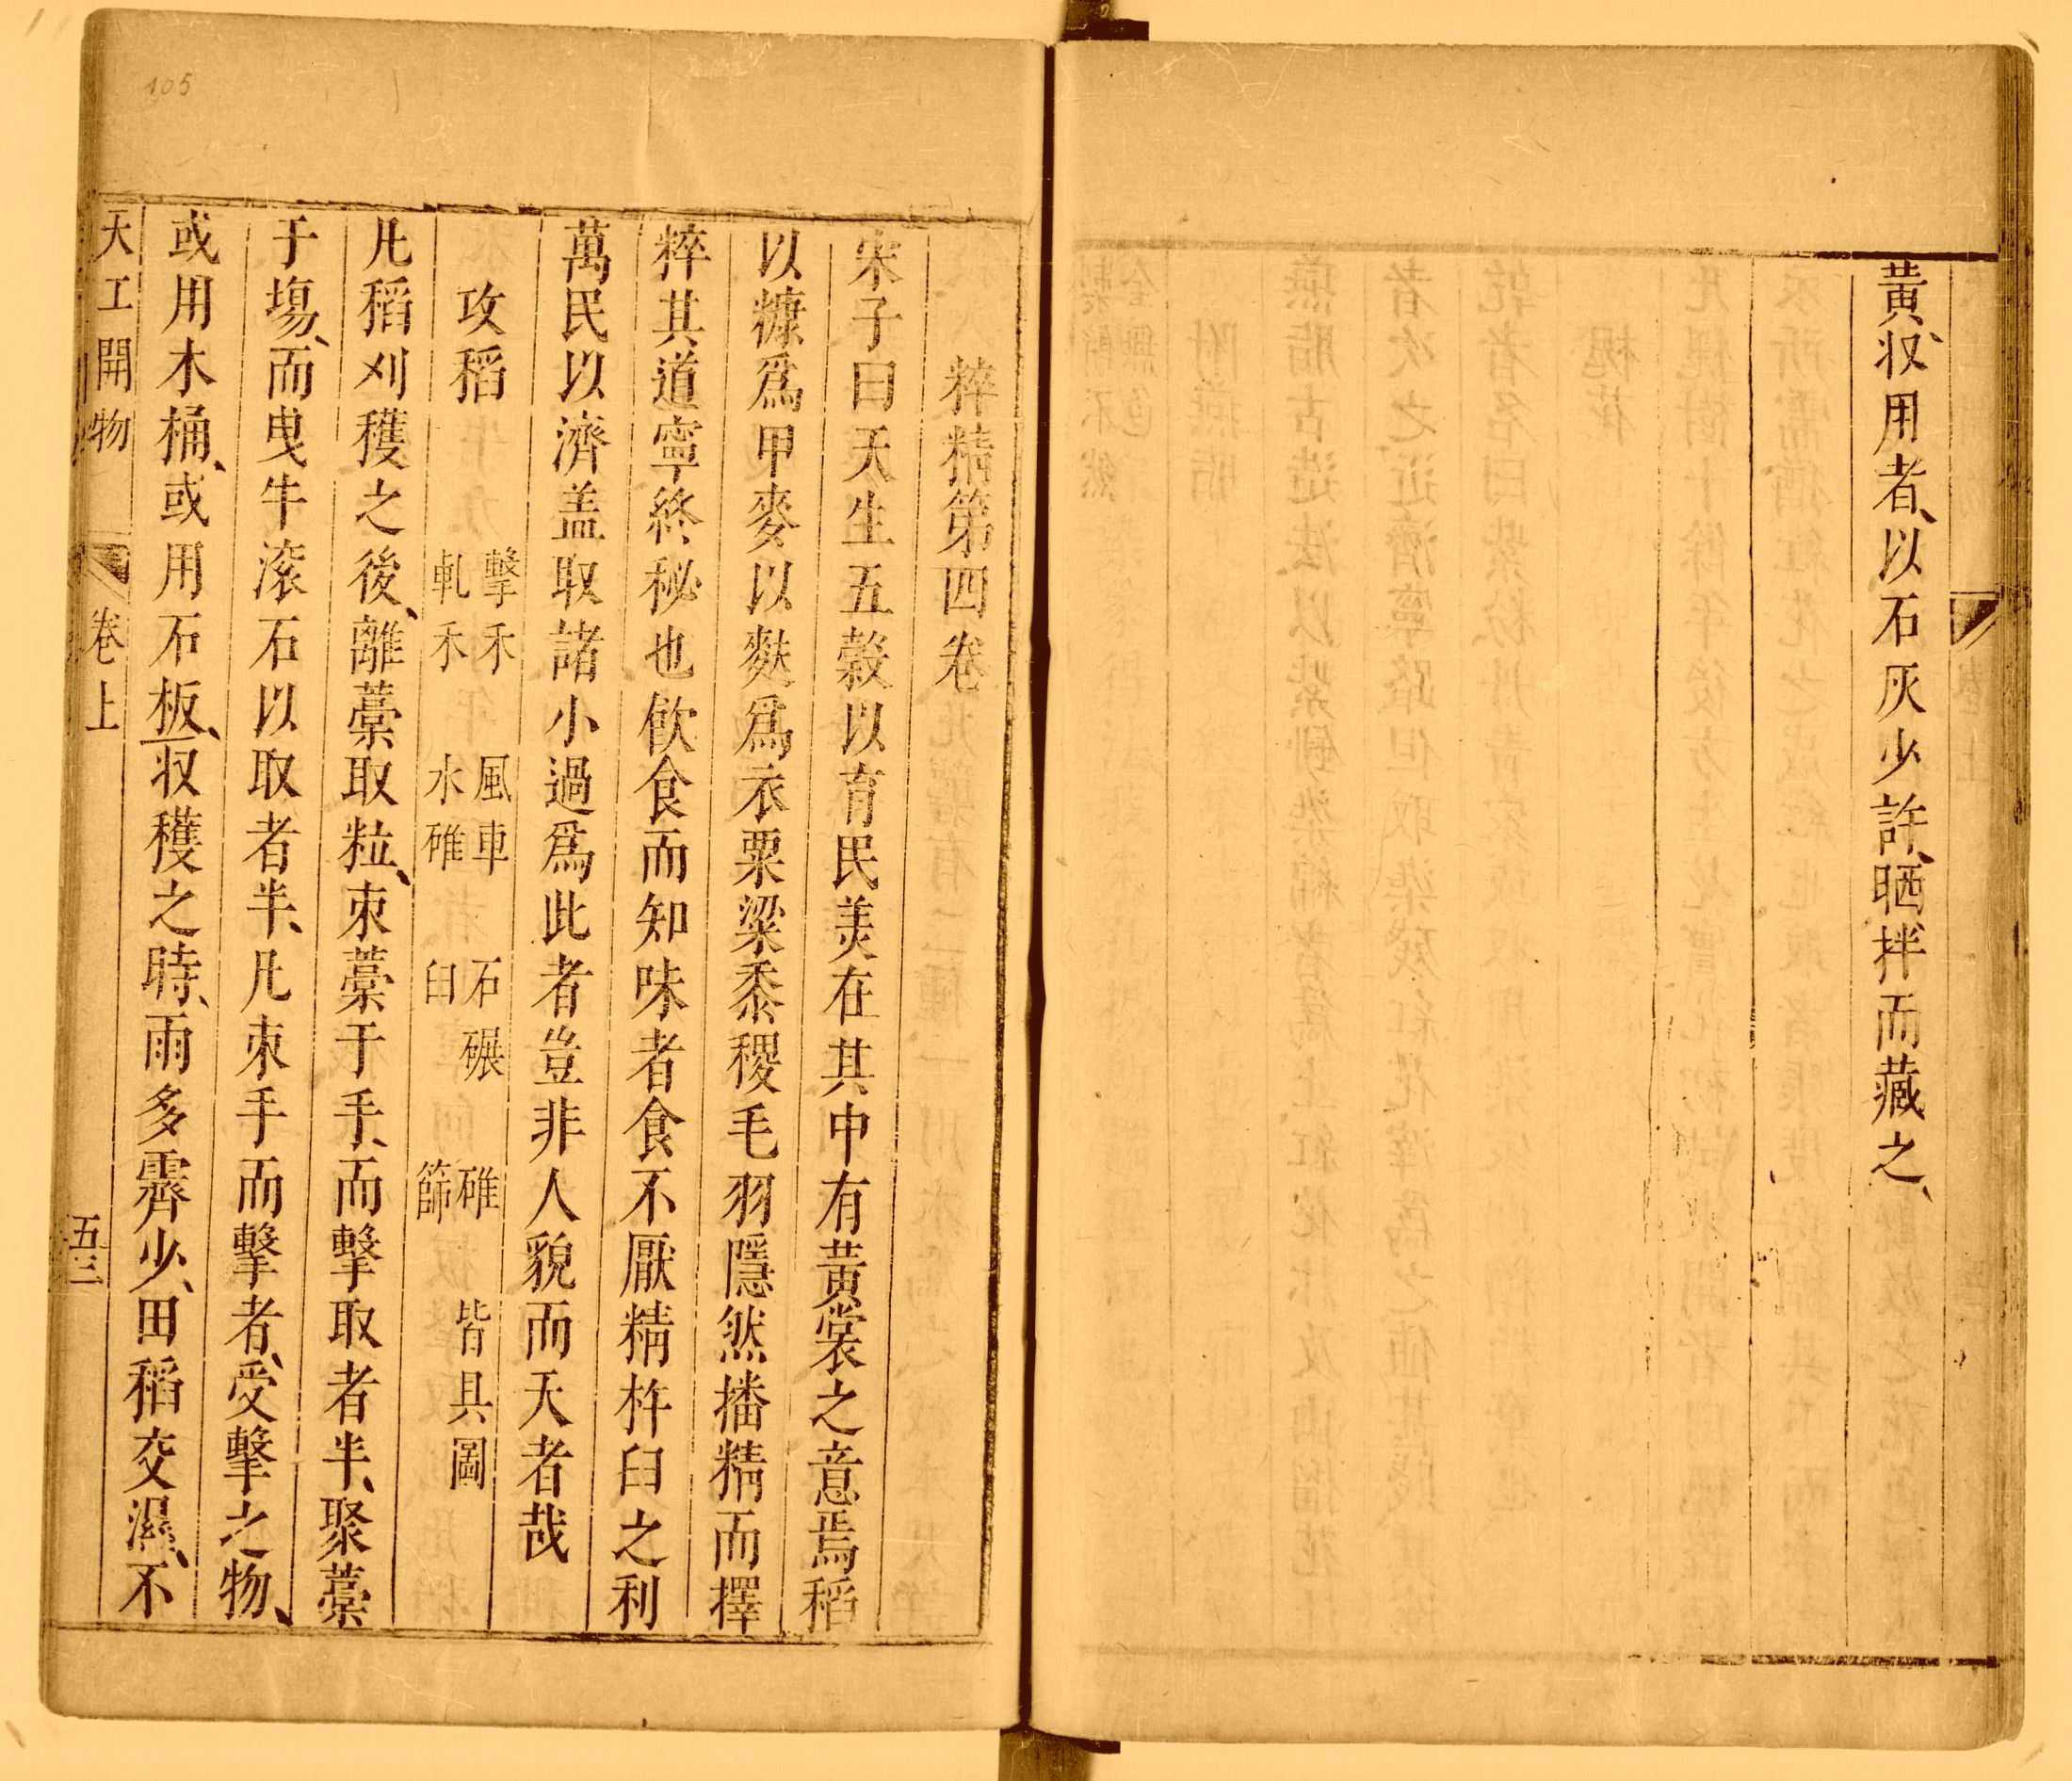 黃、収用者、以石灰少許、晒拌而藏之、
粹精第四卷
宋子曰天生五穀以育民美在其中有黃裳之意焉稻
以糠爲甲麥以麩爲衣粟粱黍稷毛羽隱然播精而擇
粹其道寧終秘也飲食而知味者食不厭精杵臼之利
萬民以濟盖取諸小過爲此者豈非人貌而天者哉
攻稻 擊禾 軋禾 風車 水碓 石碾 臼 碓 篩 皆具圖
凡稻刈穫之後、離藁取粒、束藁于手、而擊取者半、聚藁
于塲、而曳牛滚石以取者半、凡束手而擊者、受擊之物、
或用木桶、或用石板、収穫之時、雨多霽少、田稻交濕、不
天工開物 卷上 五三
105